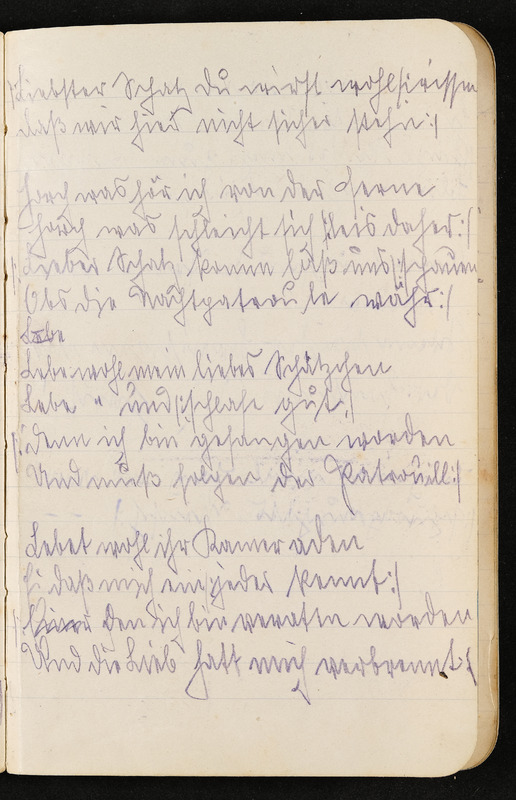 /:Liebster Schatz du wirst wohl /: wissen
daß wir hier nicht sicher stehn:/
Horch was hör ich von der Ferne
Horch was schleicht sich /: leis daher:/
/: Lieber Schatz komm laß uns /: schauen
Obs die Nachtpatroule währ:/
Lebe
Lebe wohl mein liebes Schätzchen
Lebe " und /: schlafe gut:/
/: denn ich bin gefangen worden
Und muß folgen der Patrouill:/
Lebet wohl ihr Kameraden
daß mich ein jeder kennt:/
den ich bin veratn worden
Und die Lieb hatt mich verbrennt:/